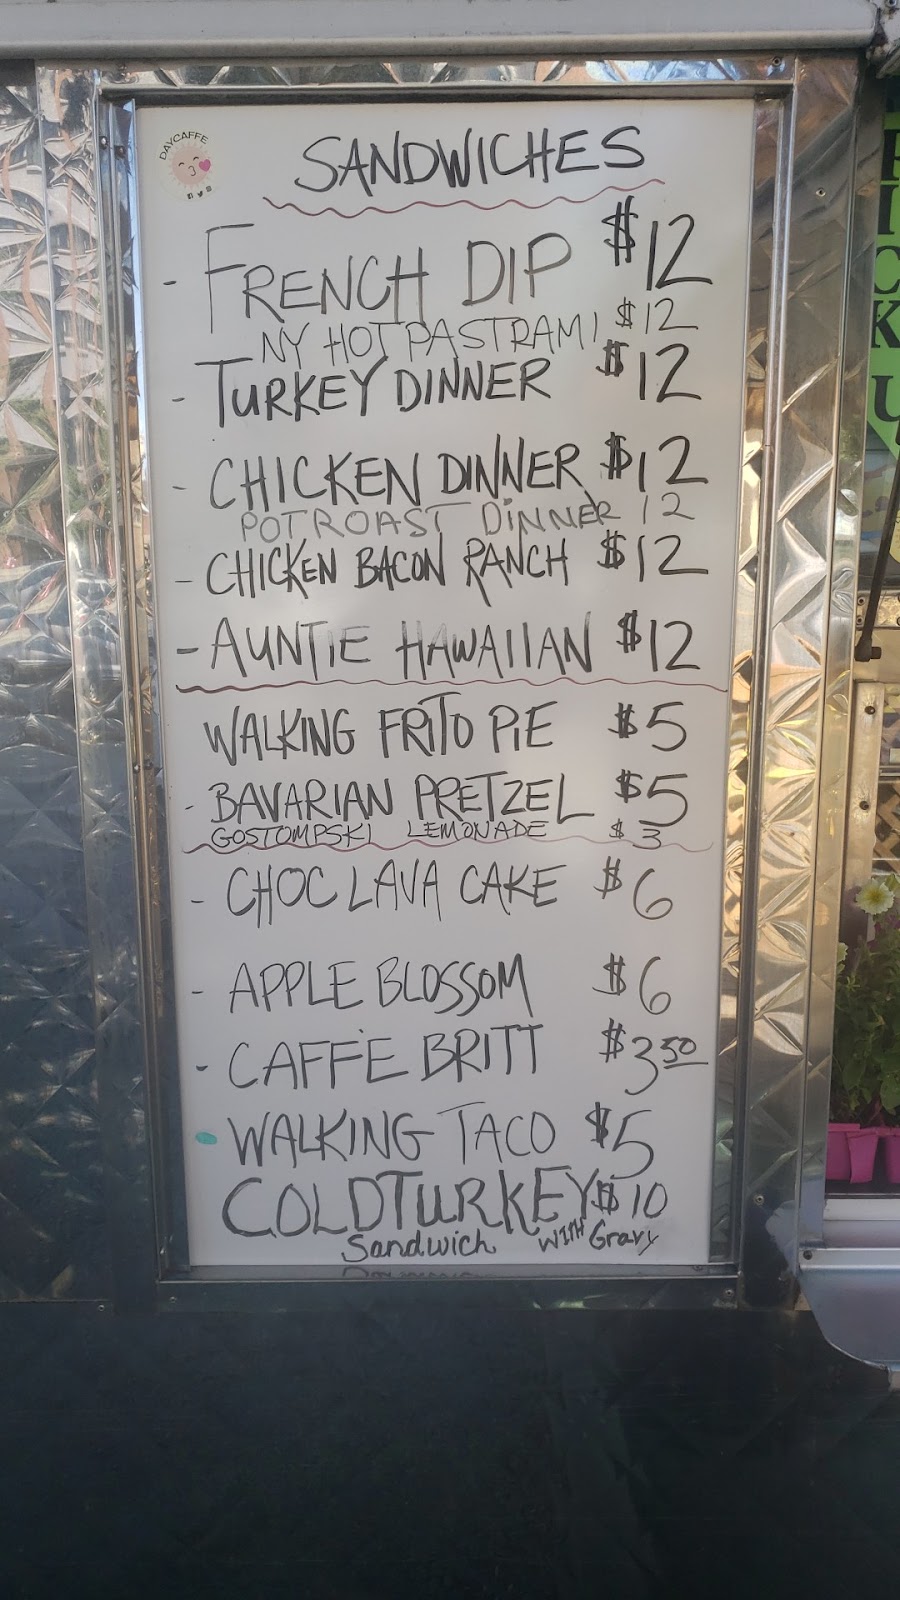 DAYCAFFE
SANDWICHES
- FRENCH DIP $12
NY HOT PASTRAMI $12
- TURKEY DINNER $12
- CHICKEN DINNER $12
POT ROAST DINNER 12
- CHICKEN BACON RANCH $12
- AUNTIE HAWAIIAN $12
WALKING FRITO PIE $5
- BAVARIAN PRETZEL $5
GOSTOMPSKI LEMONADE $3
- CHOC LAVA CAKE $6
- APPLE BLOSSOM $6
- CAFFÈ BRITT $3 50
• WALKING TACO $5
COLD TURKEY $10
Sandwich WITH Gravy
PICK U